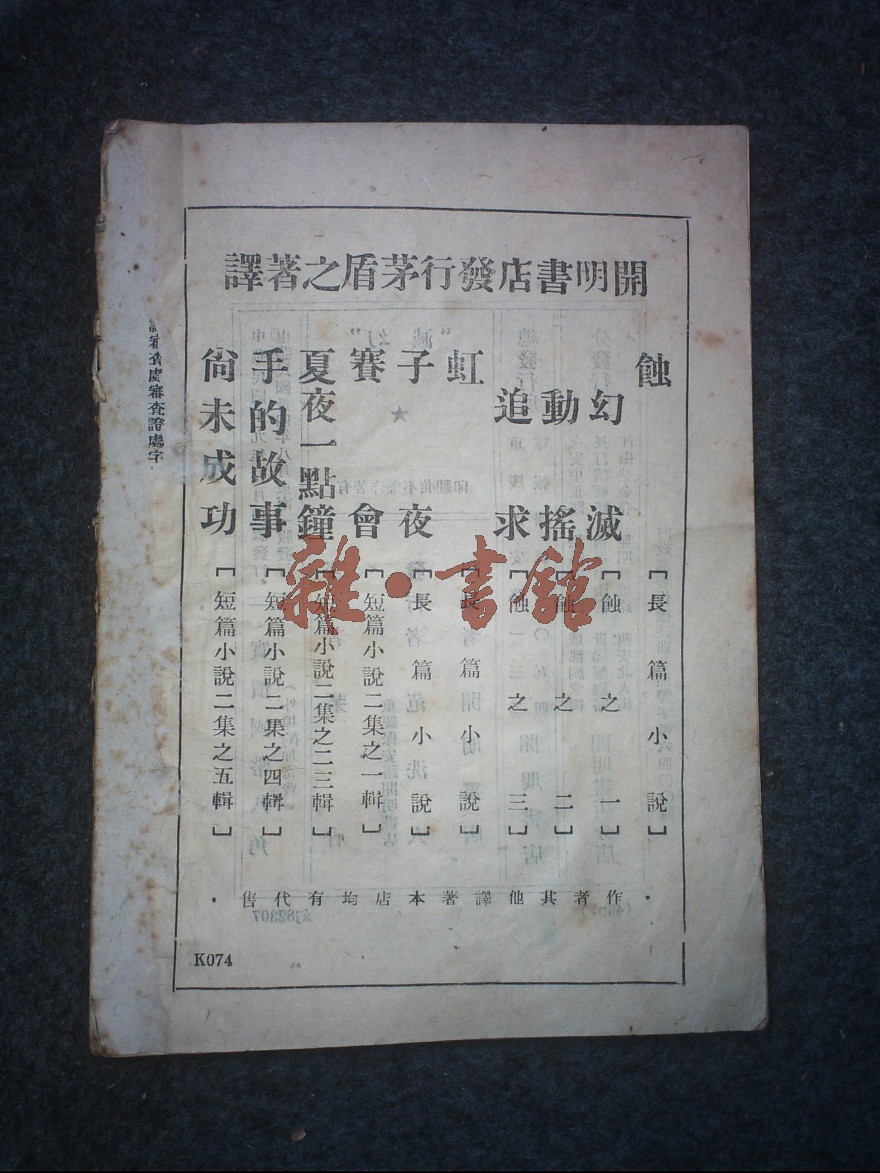 開明書店發行茅盾之著譯
蝕［長篇小說］
幻滅［蝕之一］
動搖［蝕之二］
追求［蝕之三］
虹［長篇小說］
子夜［長篇小說］
賽會［短篇小說二集之一輯］
夏夜一點鐘［短篇小說二集之二三輯］
手的故事［短篇小說二集之四輯］
尙未成功［短篇小說二集之五輯］
·作者其他譯著本店均有代售·
K074
審查處審查證處字
雜·書館